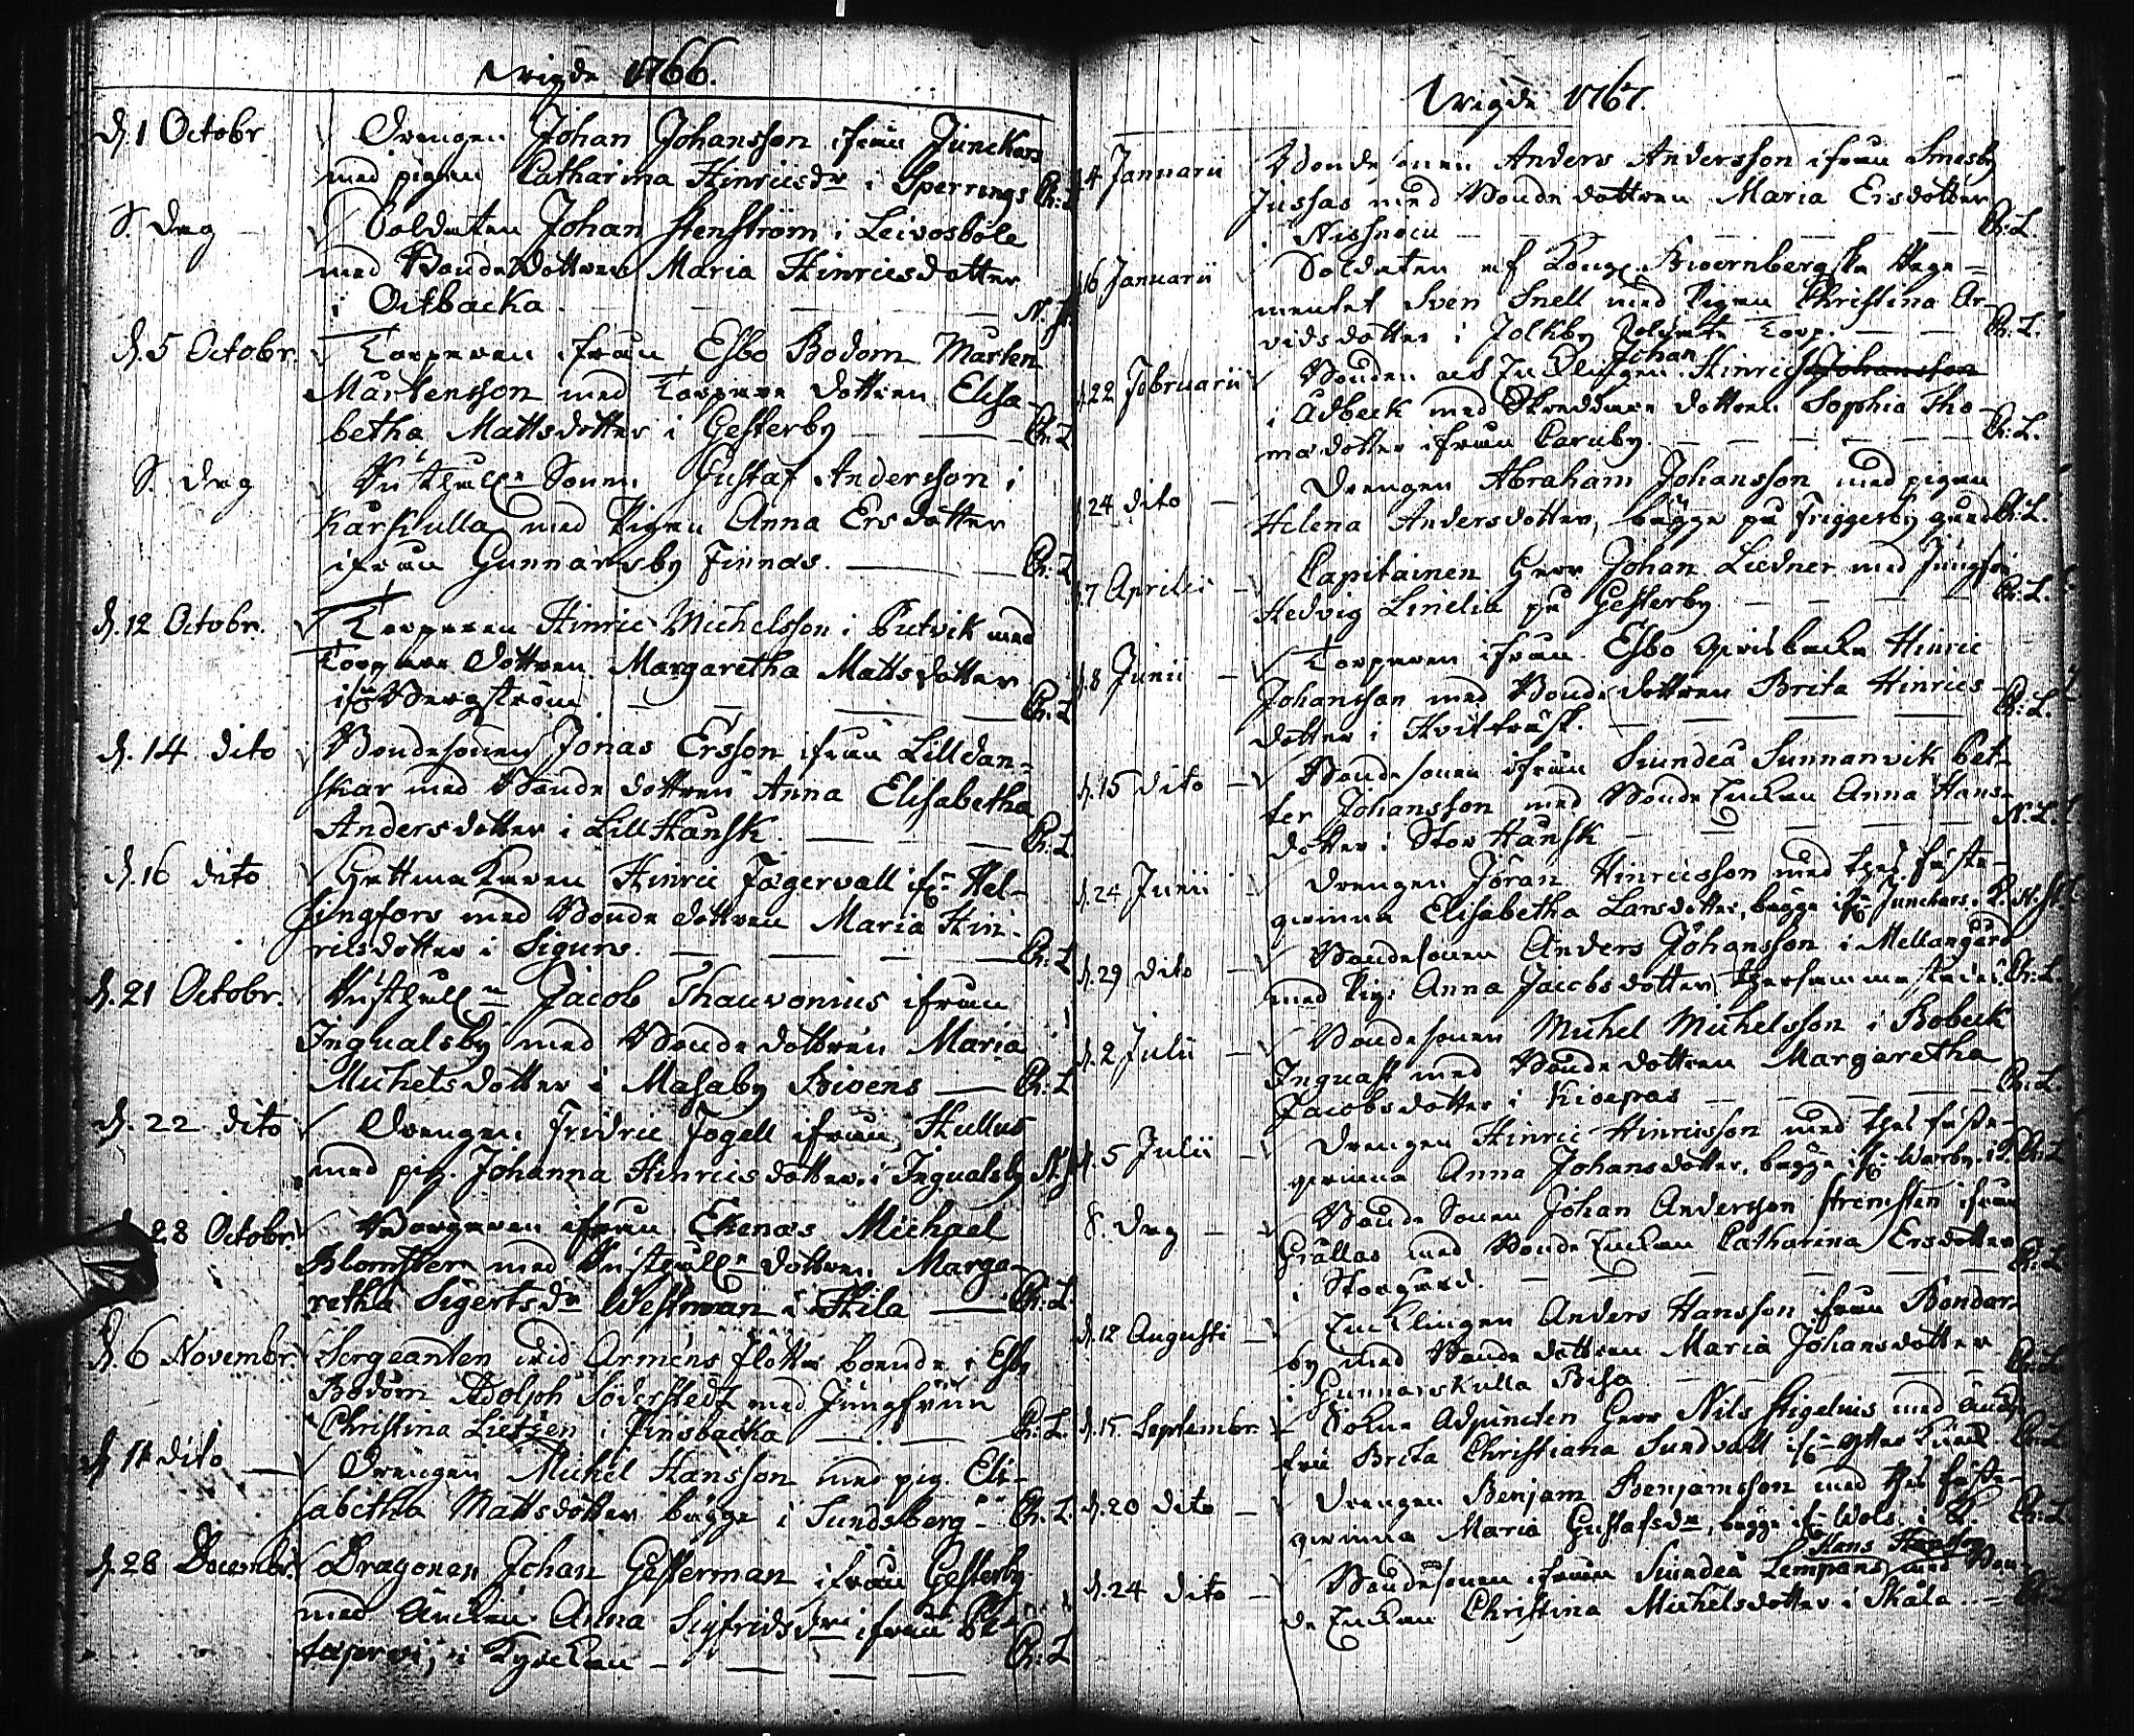 Wigde 1766.
d. 1 Octobr Drengen Johan Johansson ifrån Junckars
med pigan Catharina Hinricsdr i Sperrings Ch: L
S. dag Soldaten Johan Stenström i Leivosböle
med Bondedottren Maria Hinricsdotter
i Oitbacka N. St.
d. 5 Octobr. Torparen ifrån Esbo Bodom Mårten
Mårtensson med Torpare dottren Elisa-
betha Mattsdotter i Gesterby Ch: L
S. dag Rusthåll:s Sonen Gustaf Andersson i
Karskulla med Pigan Anna Ersdotter
ifrån Gunnarsby Finnas. Ch: L
d. 12 Octobr. Torparen Hinric Michelsson i Butvik med
Torpare dottren Margaretha Mattsdotter
ifr: Bergström Ch: L
d. 14 dito Bondesonen Jonas Ersson ifrån Lilldan-
skar med Bonde dottren Anna Elisabetha
Andersdotter i Lill Hansk Ch: L
d. 16 dito Hattmakaren Hinric Fagervall ifr: Hel-
singfors med Bonde dottren Maria Hin-
ricsdotter i Sigurs. Ch: L
d. 21 Octobr. Rusthåll:n Jacob Thauvonius ifrån
Ingvalsby med Bonde dottren Maria
Michelsdotter i Masaby Bivens Ch: L
d. 22 dito Drengen Fridric Fogell ifrån Kullus
med pig. Johanna Hinricsdotter i Ingvalsby N. St.
28 Octobr. Borgaren ifrån Ekenäs Michael
Blomster med Rusthåll:s dottren Marga-
retha Sigertsdr Westman i Kila Ch: L.
d. 6 Novembr. Sergeanten vid Armens flotta boende i Esbo
Bodom Adolph Söderstedt med Jungfrun
Christina Lietzen i Finsbacka Ch: L.
d. 11 dito Drengen Michel Hansson med pig. Eli-
sabetha Mattsdotter bägge i Sundsberg Ch: L.
d. 28 Decembr. Dragonen Johan Gesterman ifrån Gesterby
med Änckan Anna Sigfridsdr ifrån
i Kyrckan Ch: L
Wigde 1767.
4 Januarii Bonde sonen Anders Andersson ifrån Smesby
Jussas med Bonde dottren Maria Ersdotter
i Nissnicu Ch: L.
16 Januarii Soldaten af Kongl. Bioernbergska Rege-
mentet Sven Snell med Pigan Christina Ar-
vidsdotter i Jolkby Soldate Torp. Ch: L.
d. 22 Februarii Bonden och Enklingen Johan Hinricsson Johansson
i Adbeck med Skreddare dottren Sophia Tho-
masdotter ifrån Caruby. Ch: L.
d. 24 dito Drengen Abraham Johansson med pigan
Helena Andersdotter, bägge på Friggesby gård Ch: L.
d. 7 Aprilis Capitainen Herr Johan Liedner med Jungfru
Hedvig Linelia på Gesterby Ch: L.
d. 8 Junii Torparen ifrån Esbo Qvisbacka Hinric
Johansson med Bonde dottren Brita Hinrics-
dotter i Hvitträsk. Ch: L.
d. 15 dito Bonde sonen ifrån Siundeå Sunnanvik Pet-
ter Johansson med Bonde Enckan Anna Hans-
dotter i Stor Hansk N. L.
d. 24 Junii Drengen Jöran Hinricsson med thes fäste-
qvinna Elisabetha Larsdotter, bägge ifr: Junckars. K. N. St.
d. 29 dito Bondesonen Anders Johansson i Mellangård
med Pig: Anna Jacobsdotter thersammastädes. Ch: L.
d. 2 Julii Bondesonen Michel Michelsson i Bobeck
Ingvast med Bonde dottren Margaretha
Jacobsdotter i Kioepas Ch: L.
d. 5 Julii Drengen Hinric Hinricsson med thes fäste-
qvinna Anna Johansdotter, bägge ifr: Warby. Ch: L
S. dag Bonde Sonen Johan Andersson Stremsten ifrån
Grällas med Bonde Enckan Catharina Ersdotter
i Storgård. Ch: L
d. 12 Augusti Encklingen Anders Hansson ifrån Bondar-
by med Bonde dottren Maria Johansdotter
i Gunnarskulla Bisa Ch: L
d. 15 Septembr. Sockne Adjuncten Herr Nils Stigelius med
fru Brita Christiana Sundvall ifr: Ytter Ch: L
d. 20 dito Drengen Benjam Benjamsson med thes fäste-
qvinna Maria Gustafsdr, bägge ifr: Wols i K. Ch: L.
d. 24 dito Bondesonen ifrån Siundeå Lempans Hans Hansson med Bon-
de Enckan Christina Michelsdotter i Skåla. Ch: L